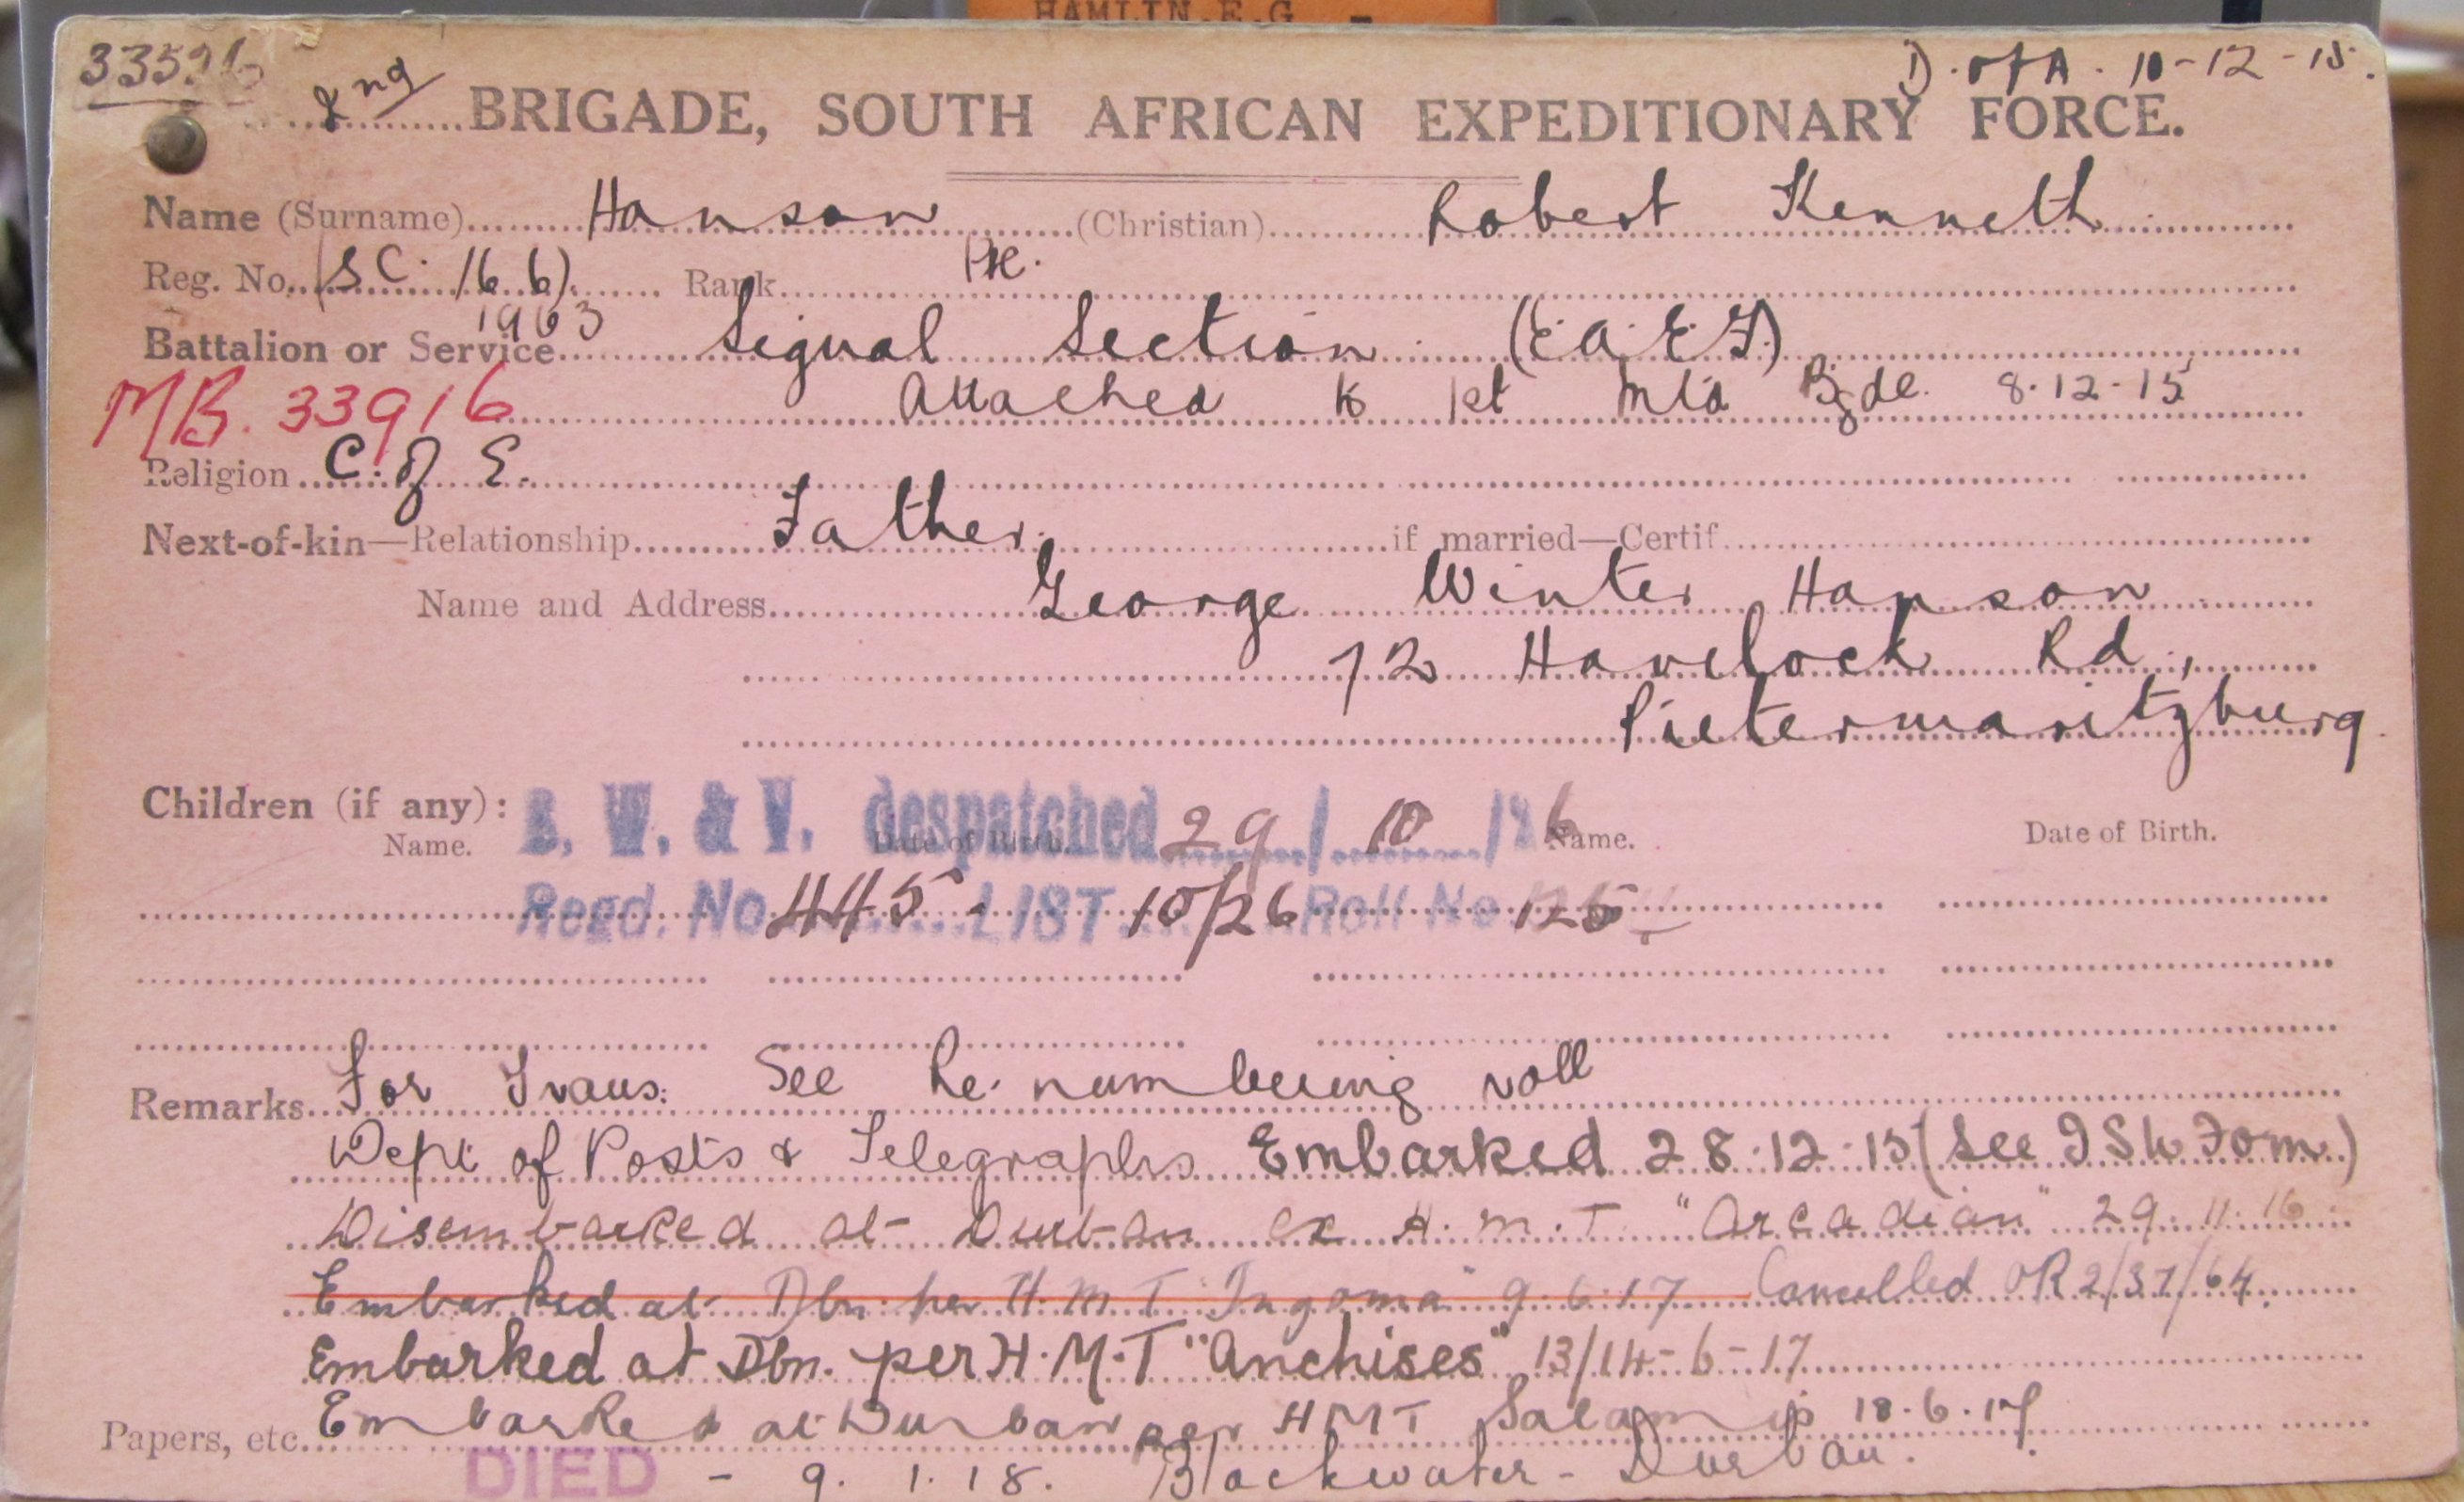 HAMLIN.E.G. -
D. of A. 10-12-15.
2nd BRIGADE, SOUTH AFRICAN EXPEDITIONARY FORCE.
Name (Surname) Hanson (Christian) Robert Kenneth
Reg. No. (SC. 166) Rank Pte.
1963
Battalion or Service Signal Section (E.A.E.F.)
MB. 33916 Attached to 1st Mtd Bgde. 8.12.15
Religion C. of E.
Next-of-kin—Relationship Father. if married—Certif.
Name and Address George Winter Hanson
72 Havelock Rd.,
Pietermaritzburg.
Children (if any): B. W. & V. despatched 29/10/
Name. Date of Birth. Name. Date of Birth.
Regd. No 445. LIST 10/26 Roll No
Remarks For Trans: See Re-numbering roll
Dept of Posts & Telegraphs Embarked 28.12.15 (See Form)
Disembarked at Durban ex H.M.T. "Arcadian" 29.11.16
Embarked at Dbn. per H.M.T. "Ingoma" 9.6.17 Cancelled OR 2/37/64.
Embarked at Dbn. per H.M.T "Anchises" 13/14-6-17
Papers, etc. Embarked at Durban per HMT Salamis 18.6.17
DIED - 9.1.18. Blackwater - Durban.